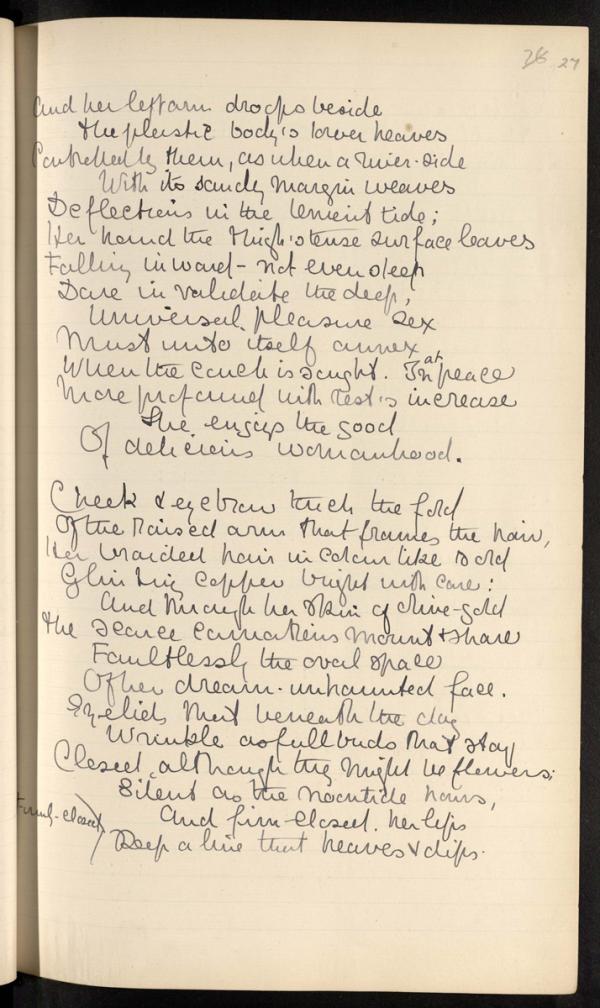 And her left arm drops beside
The plastic body's lower heaves
Controlled by them, as when a river-side
With its sandy margin weaves
Deflections in the lenient tide;
Her hand the thigh's tense surface leaves
Falling inward - not even sleep
Dare invalidate the deep,
Universal pleasure sex
Must unto itself annex
When the couch is sought. In at peace
More profound with rest's increase
She enjoys the good
Of delicious womanhood.
Cheek & eyebrow touch the fold
Of the raised arm that frames the hair,
Her braided hair in colour like old
Glinting copper bright with care:
And through her skin of olive-gold
The scarce carnations mount & share
Faultlessly the oval space
Of her dream-unhaunted face.
Eyelids that beneath the day
Wrinkle as full buds that stay
Closed, although they might be flowers;
Silent as the noontide hours,
And firm-closed, her lips
Firmly-closed
Keep a line that heaves & dips.
27